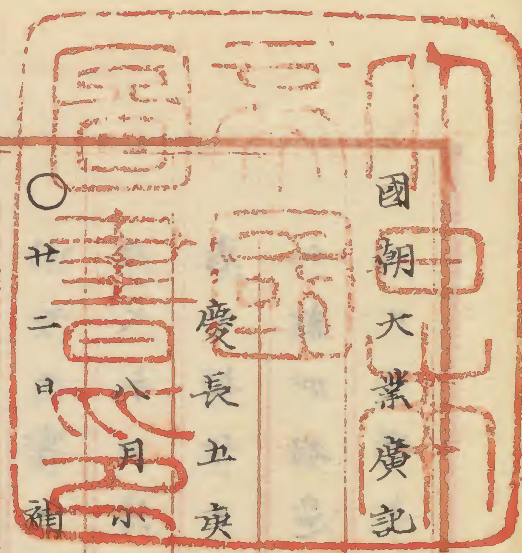 國朝大業廣記
慶長五庚
八月小
〇廿二日補